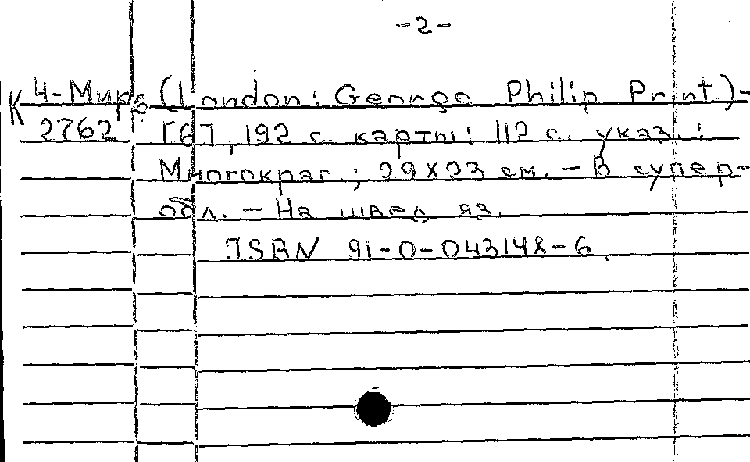 -2-
К 4-Мир (London: George Philip Print)-
2762 192 с. карты: 112 с. указ.:
Многокрас.; 29×23 см. - В супер-
обл. - На швед. яз.
ISBN 91-0-043148-6.